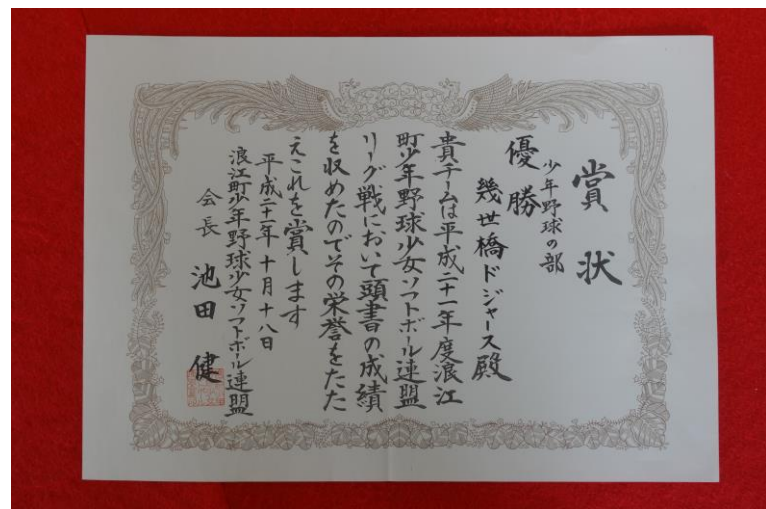 賞状
少年野球の部
優勝
幾世橋ドジャース殿
貴チームは平成二十一年度浪江
町少年野球少女ソフトボール連盟
リーグ戦において頭書の成績
を収めたのでその栄誉をたた
えこれを賞します
平成二十一年十月十八日
浪江町少年野球少女ソフトボール連盟
会長 池田 健